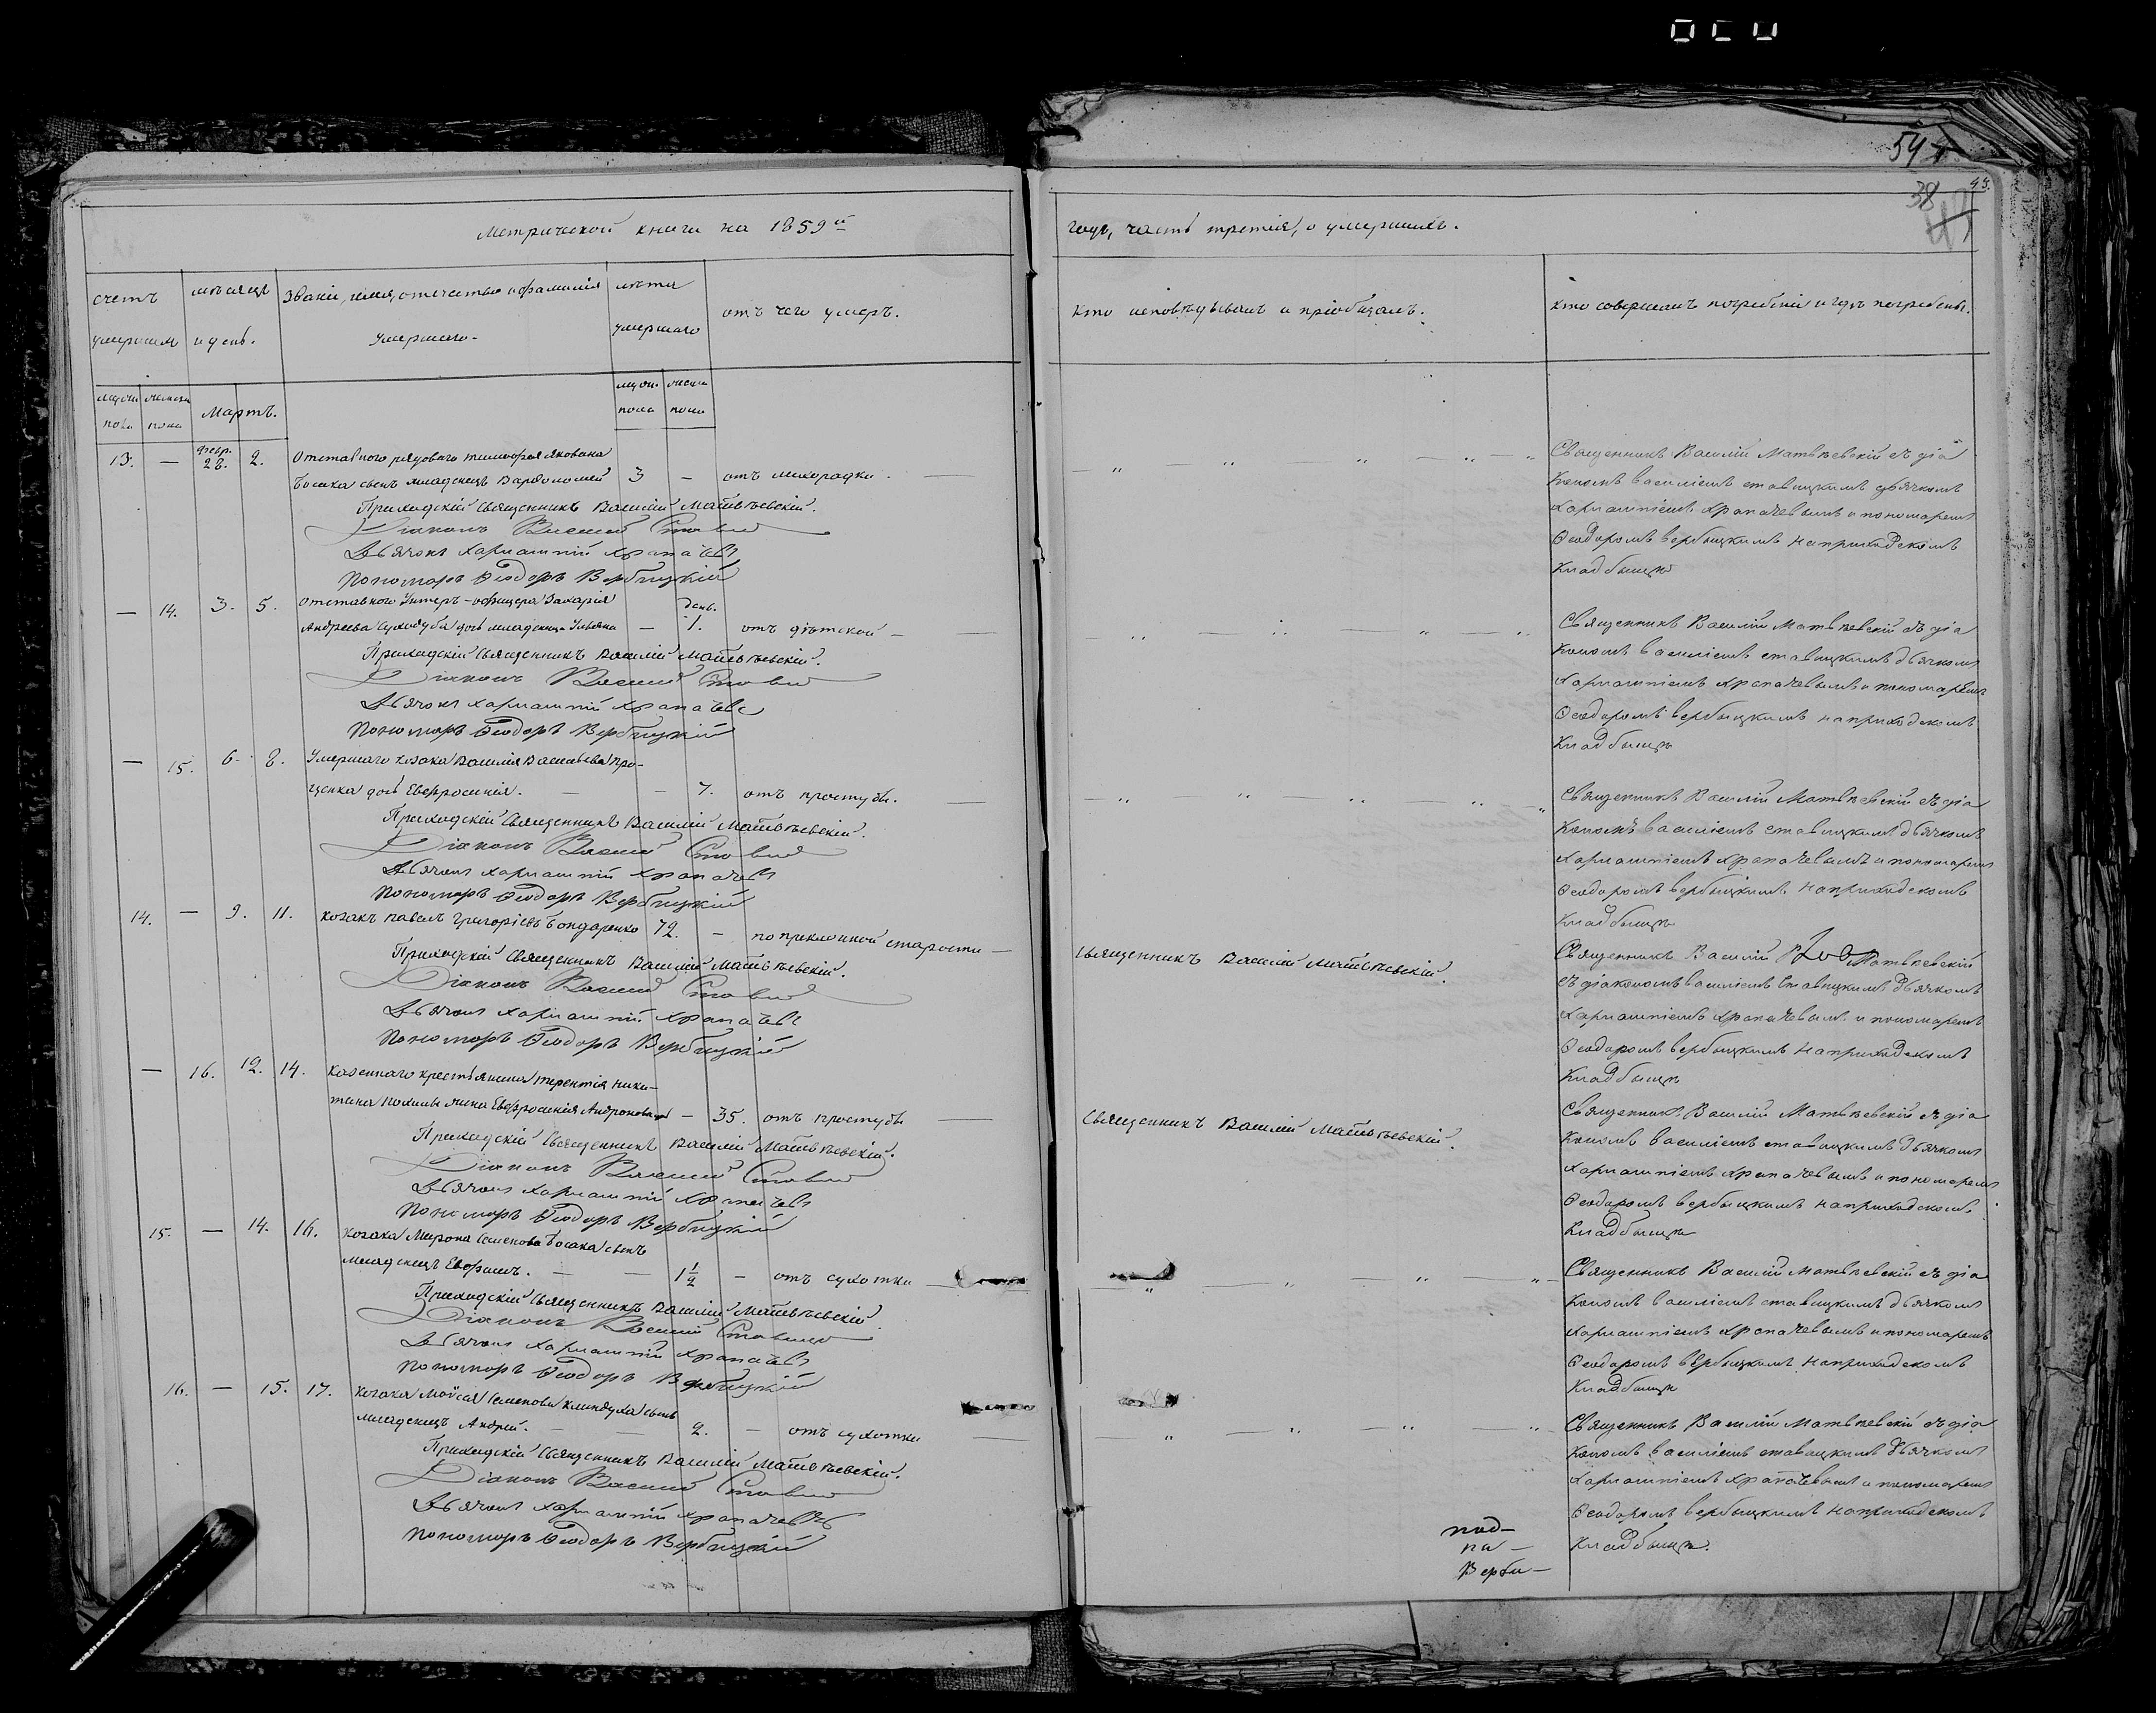 54
43.
38
Метрической книги на 1859й
годъ, часть третія, о умершихъ.
счетъ умершихъ
мѣсяцъ и день.
Званіе, имя, отечество и фамилія умершаго.
лѣта умершаго
отъ чего умеръ.
кто исповѣдывалъ и пріобщалъ.
кто совершалъ погребеніе и гдѣ погребены.
мужеска пола
женска пола
Мартъ.
муж. пола
женска пола
13. — февр. 28. 2. Отставного рядового Тимофея Яковлева
Босака сынъ младенецъ Варфоломей 3 — отъ лихорадки.
Приходскій Священникъ Василій Матвѣевскій.
Діаконъ Василій
Дьячокъ Харлампій Храпачевъ
Пономарь Ѳеодоръ Вербицкій
Священникъ Василій Матвѣевскій съ діа
кономъ Василіемъ Ставицкимъ дьячкомъ
Харлампіемъ Храпачевымъ и пономаремъ
Ѳеодоромъ Вербицкимъ на приходскомъ
кладбищѣ
— 14. 3. 5. Отставного Унтеръ-офицера Захарія
Андреева дочь младенецъ Ульяна — день. 1. отъ дѣтской
Приходскій Священникъ Василій Матвѣевскій.
Діаконъ Василій
Дьячокъ Харлампій Храпачевъ
Пономарь Ѳеодоръ Вербицкій
Священникъ Василій Матвѣевскій съ діа
кономъ Василіемъ Ставицкимъ дьячкомъ
Харлампіемъ Храпачевымъ и пономаремъ
Ѳеодоромъ Вербицкимъ на приходскомъ
кладбищѣ
— 15. 6. 8. Умершаго козака Василія Васильева Про-
ценка дочь Евфросинія. — — 7. отъ простуды.
Приходскій Священникъ Василій Матвѣевскій.
Діаконъ Василій
Дьячокъ Харлампій Храпачевъ
Пономарь Ѳеодоръ Вербицкій
Священникъ Василій Матвѣевскій съ діа
кономъ Василіемъ Ставицкимъ дьячкомъ
Харлампіемъ Храпачевымъ и пономаремъ
Ѳеодоромъ Вербицкимъ на приходскомъ
кладбищѣ
14. — 9. 11. козакъ Павелъ Григоріевъ Бондаренко 72. — по преклонной старости —
Приходскій Священникъ Василій Матвѣевскій.
Діаконъ Василій
Дьячокъ Харлампій Храпачевъ
Пономарь Ѳеодоръ Вербицкій
Священникъ Василій Матвѣевскій.
Священникъ Василій Матвѣевскій
съ діакономъ Василіемъ Ставицкимъ дьячкомъ
Харлампіемъ Храпачевымъ и пономаремъ
Ѳеодоромъ Вербицкимъ на приходскомъ
кладбищѣ
— 16. 12. 14. Казеннаго крестьянина Терентія Ники-
тина жена Евфросинія Андронова — 35. отъ простуды
Приходскій Священникъ Василій Матвѣевскій.
Діаконъ Василій
Дьячокъ Харлампій Храпачевъ
Пономарь Ѳеодоръ Вербицкій
Священникъ Василій Матвѣевскій.
Священникъ Василій Матвѣевскій съ діа
кономъ Василіемъ Ставицкимъ дьячкомъ
Харлампіемъ Храпачевымъ и пономаремъ
Ѳеодоромъ Вербицкимъ на приходскомъ
кладбищѣ
15. — 14. 16. козака Мирона Семенова Босака сынъ
младенецъ Евфимъ. — — 1 1/2 — отъ сухотки
Приходскій Священникъ Василій Матвѣевскій.
Діаконъ Василій
Дьячокъ Харлампій Храпачевъ
Пономарь Ѳеодоръ Вербицкій
Священникъ Василій Матвѣевскій съ діа
кономъ Василіемъ Ставицкимъ дьячкомъ
Харлампіемъ Храпачевымъ и пономаремъ
Ѳеодоромъ Вербицкимъ на приходскомъ
кладбищѣ
16. — 15. 17. козака Моисея Семенова сынъ
младенецъ Андрей. — — 2. — отъ сухотки
Приходскій Священникъ Василій Матвѣевскій.
Діаконъ Василій
Дьячокъ Харлампій Храпачевъ
Пономарь Ѳеодоръ Вербицкій
Священникъ Василій Матвѣевскій съ діа
кономъ Василіемъ Ставицкимъ дьячкомъ
Харлампіемъ Храпачевымъ и пономаремъ
Ѳеодоромъ Вербицкимъ на приходскомъ
кладбищѣ.
под-
па-
Верби-